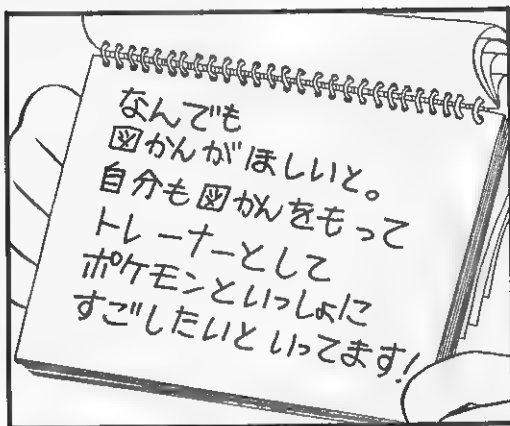 なんでも
図かんがほしいと。
自分も図かんをもって
トレーナーとして
ポケモンといっしょに
すごしたいといってます!